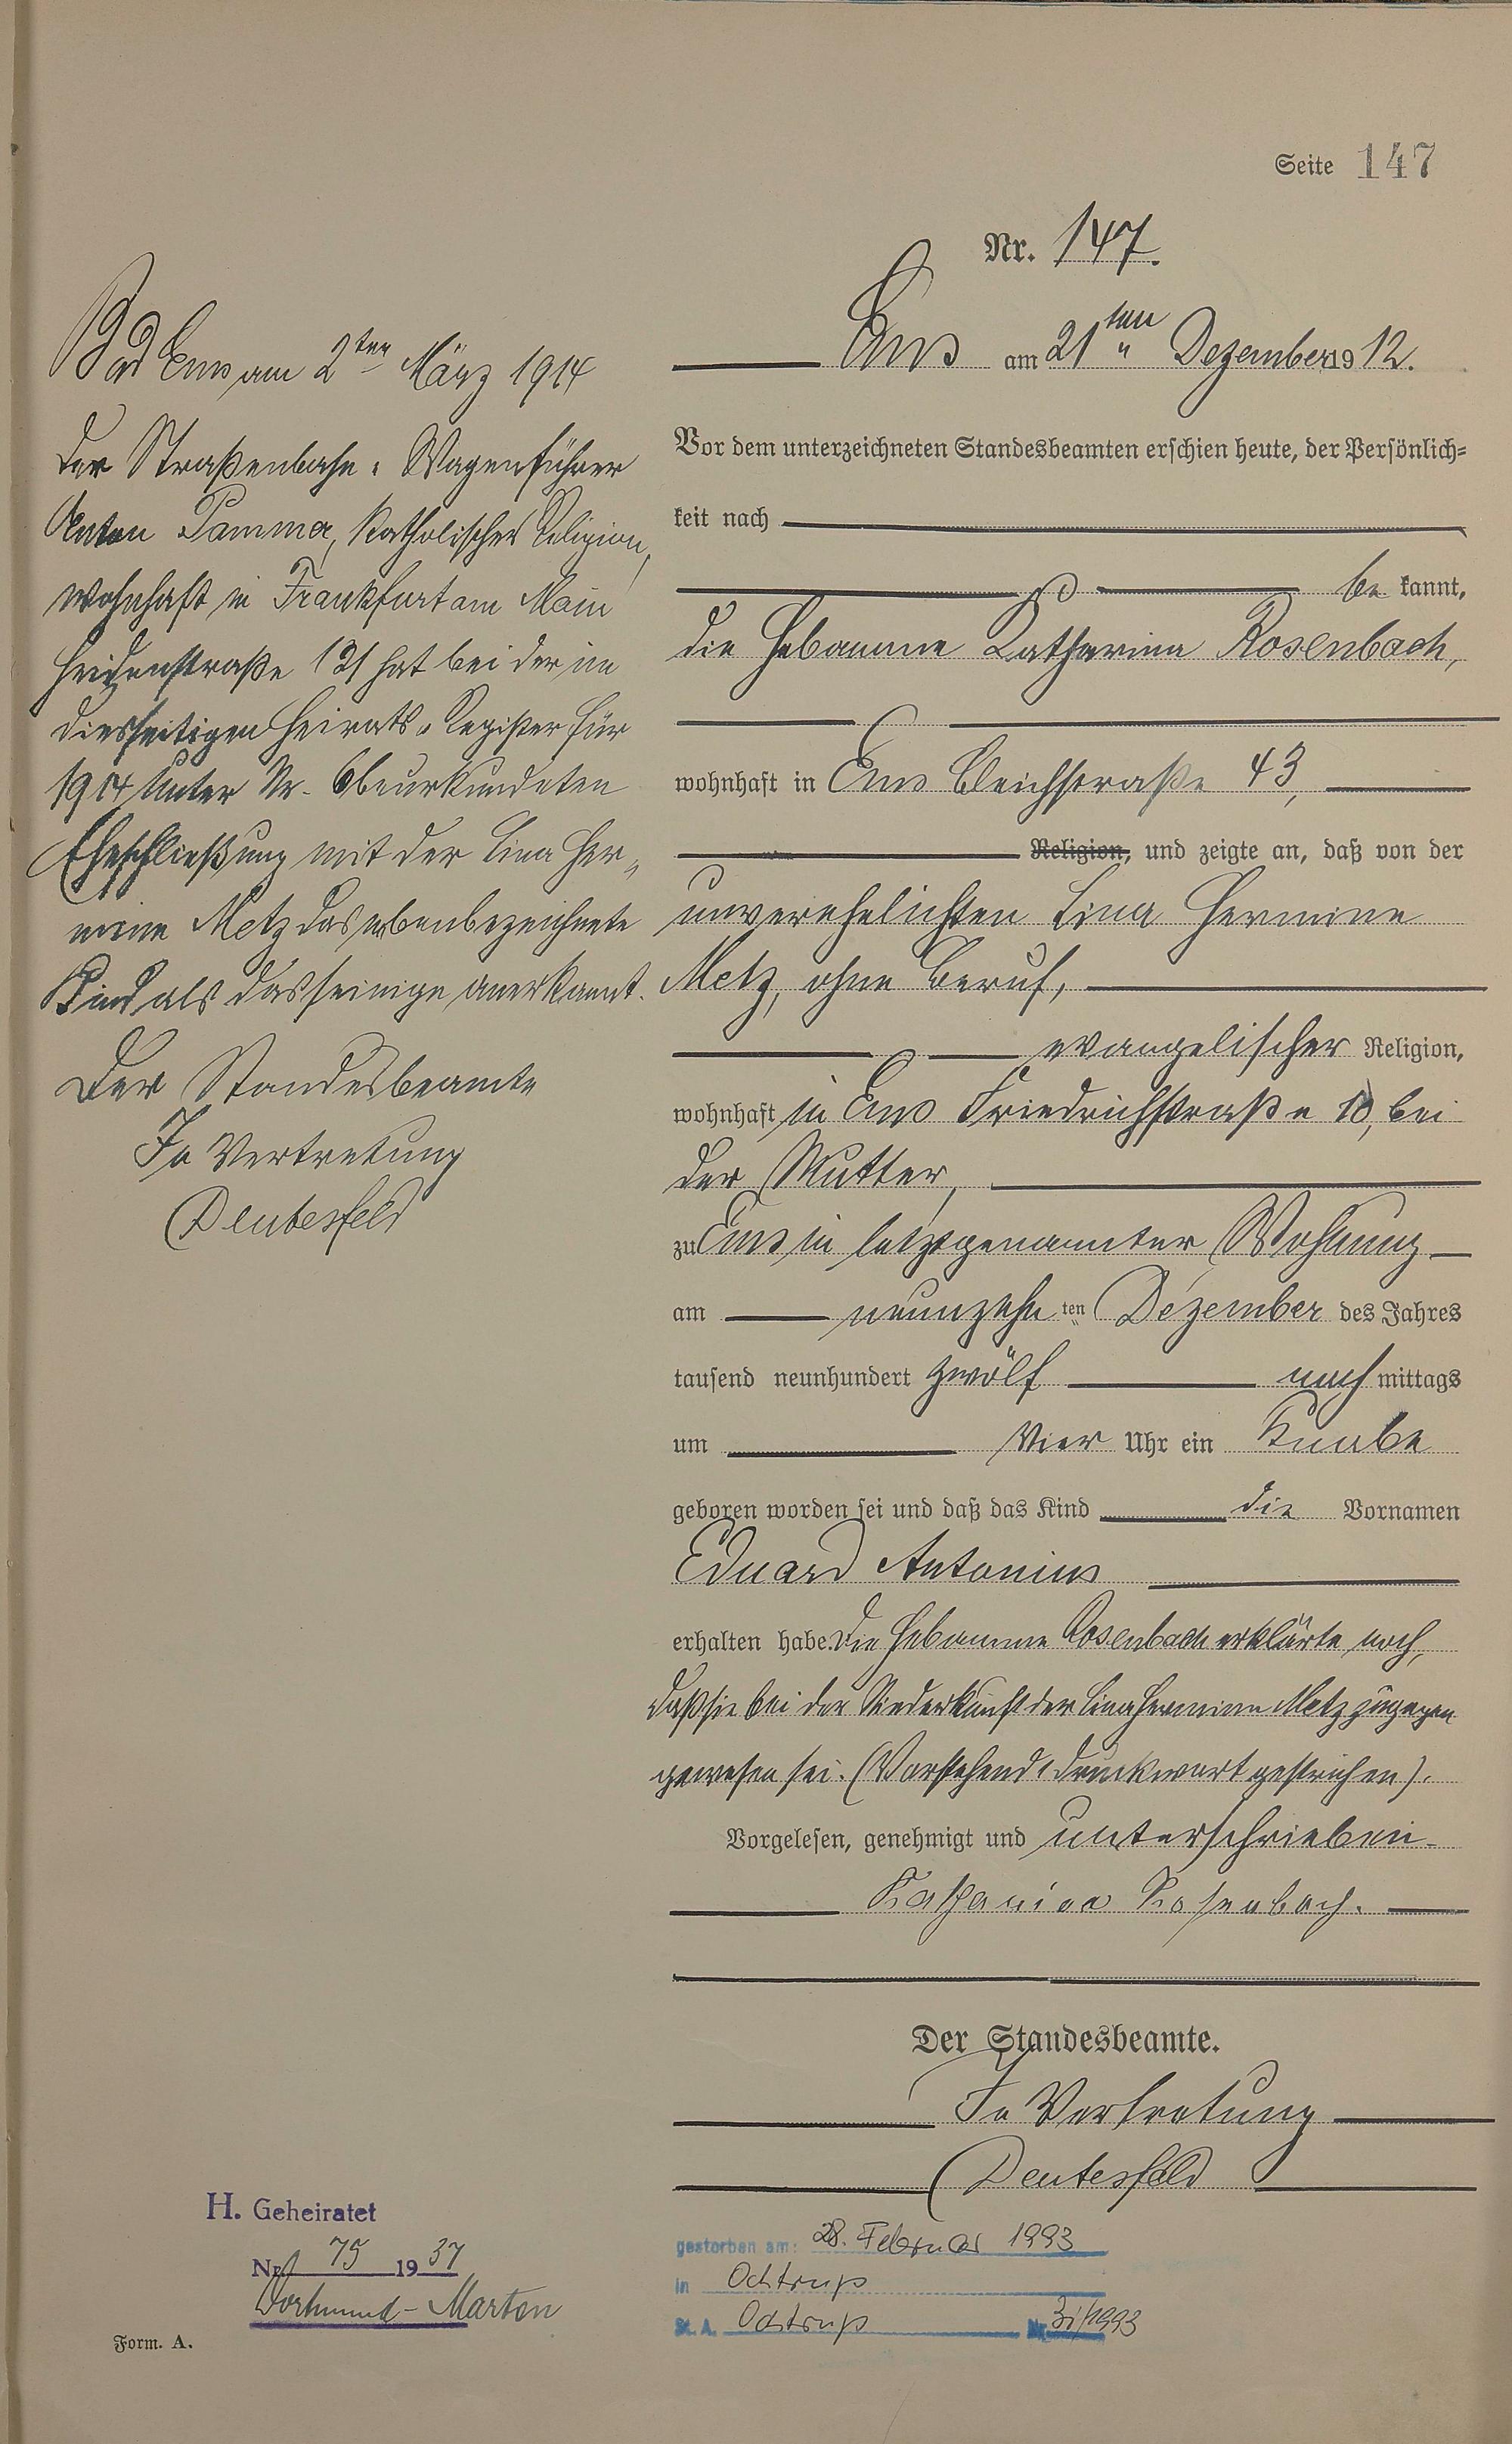 Seite 147
Nr. 147.
Ems am 21ten Dezember 1912.
Vor dem unterzeichneten Standesbeamten erschien heute, der Persönlich=
keit nach
be kannt,
die Hebamme Katharina Rosenbach,
wohnhaft in Ems Bleichstraße 43,
Religion, und zeigte an, daß von der
unverehelichten Lina Hermine
Metz, ohne Beruf,
evangelischer Religion,
wohnhaft in Ems Friedrichstraße 10, bei
der Mutter,
zu Ems in letztgenannter Wohnung
am neunzehnten Dezember des Jahres
tausend neunhundert zwölf nachmittags
um vier Uhr ein Knabe
geboren worden sei und daß das Kind die Vornamen
Eduard Antonius
erhalten habe. Die Hebamme Rosenbach erklärte noch,
daß sie bei der Niederkunft der Lina Hermine Metz zugegen
gewesen sei. (Vorstehend 1 Druckwort gestrichen).
Vorgelesen, genehmigt und unterschrieben.
Katharina Rosenbach.
Der Standesbeamte.
In Vertretung
Deutesfeld
Bad Ems am 2ten März 1914
Der Straßenbahn-Wagenführer
Anton Pamma, katholischer Religion,
wohnhaft in Frankfurt am Main
Heidenstraße 131 hat bei der im
diesseitigen Heirats-Register für
1914 unter Nr. 6 beurkundeten
Eheschließung mit der Lina Her-
mine Metz das nebenbezeichnete
Kind als das seinige anerkannt.
Der Standesbeamte
In Vertretung
Deutesfeld
H. Geheiratet
Nr. 75 1937
Dortmund-Marten
Form. A.
gestorben am: 28. Februar 1993
in Ochtrup
St. A. Ochtrup Nr. 31/1993